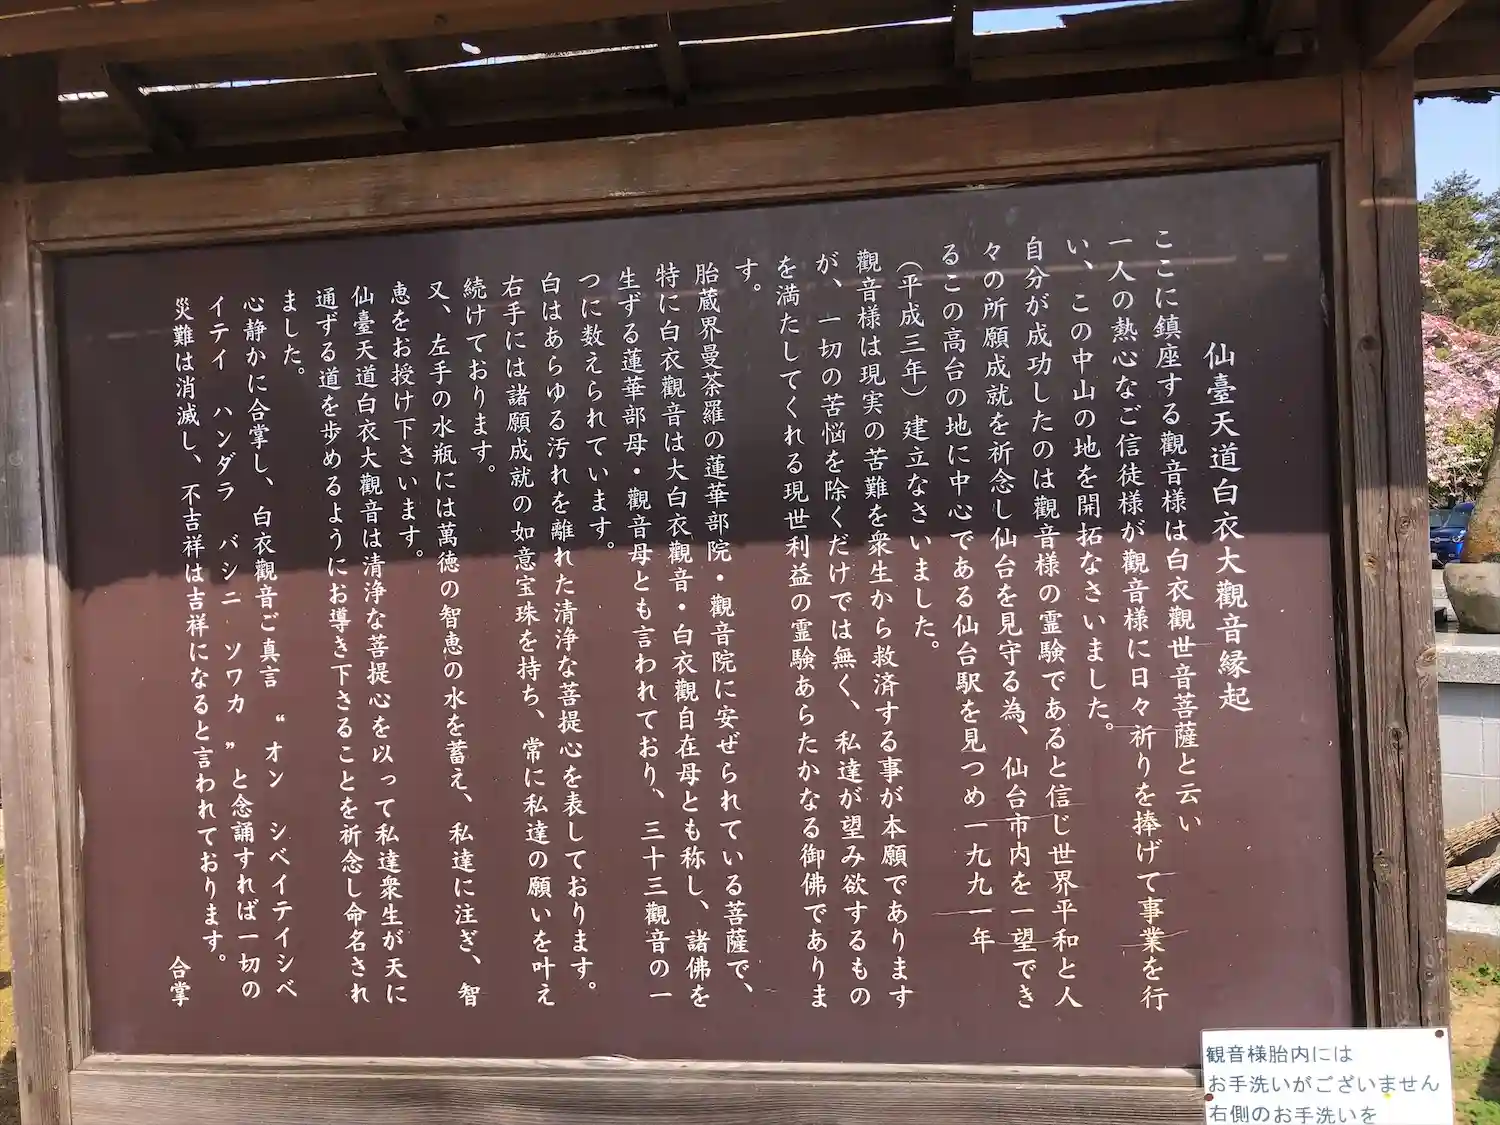 仙臺天道白衣大觀音縁起
ここに鎮座する觀音様は白衣觀世音菩薩と云い
一人の熱心なご信徒様が觀音様に日々祈りを捧げて事業を行
い、この中山の地を開拓なさいました。
自分が成功したのは觀音様の霊験であると信じ世界平和と人
々の所願成就を祈念し仙台を見守る為、仙台市内を一望でき
るこの高台の地に中心である仙台駅を見つめ一九九一年
（平成三年）建立なさいました。
觀音様は現実の苦難を衆生から救済する事が本願であります
が、一切の苦悩を除くだけでは無く、私達が望み欲するもの
を満たしてくれる現世利益の霊験あらたかなる御佛でありま
す。
胎蔵界曼荼羅の蓮華部院・觀音院に安ぜられている菩薩で、
特に白衣觀音は大白衣觀音・白衣觀自在母とも称し、諸佛を
生ずる蓮華部母・觀音母とも言われており、三十三觀音の一
つに数えられています。
白はあらゆる汚れを離れた清浄な菩提心を表しております。
右手には諸願成就の如意宝珠を持ち、常に私達の願いを叶え
続けております。
又、左手の水瓶には萬徳の智恵の水を蓄え、私達に注ぎ、智
恵をお授け下さいます。
仙臺天道白衣大觀音は清浄な菩提心を以って私達衆生が天に
通ずる道を歩めるようにお導き下さることを祈念し命名され
ました。
心静かに合掌し、白衣觀音ご真言 “オン シベイテイシベ
イテイ ハンダラ バシニ ソワカ ”と念誦すれば一切の
災難は消滅し、不吉祥は吉祥になると言われております。
合掌
観音様胎内には
お手洗いがございません
右側のお手洗いを